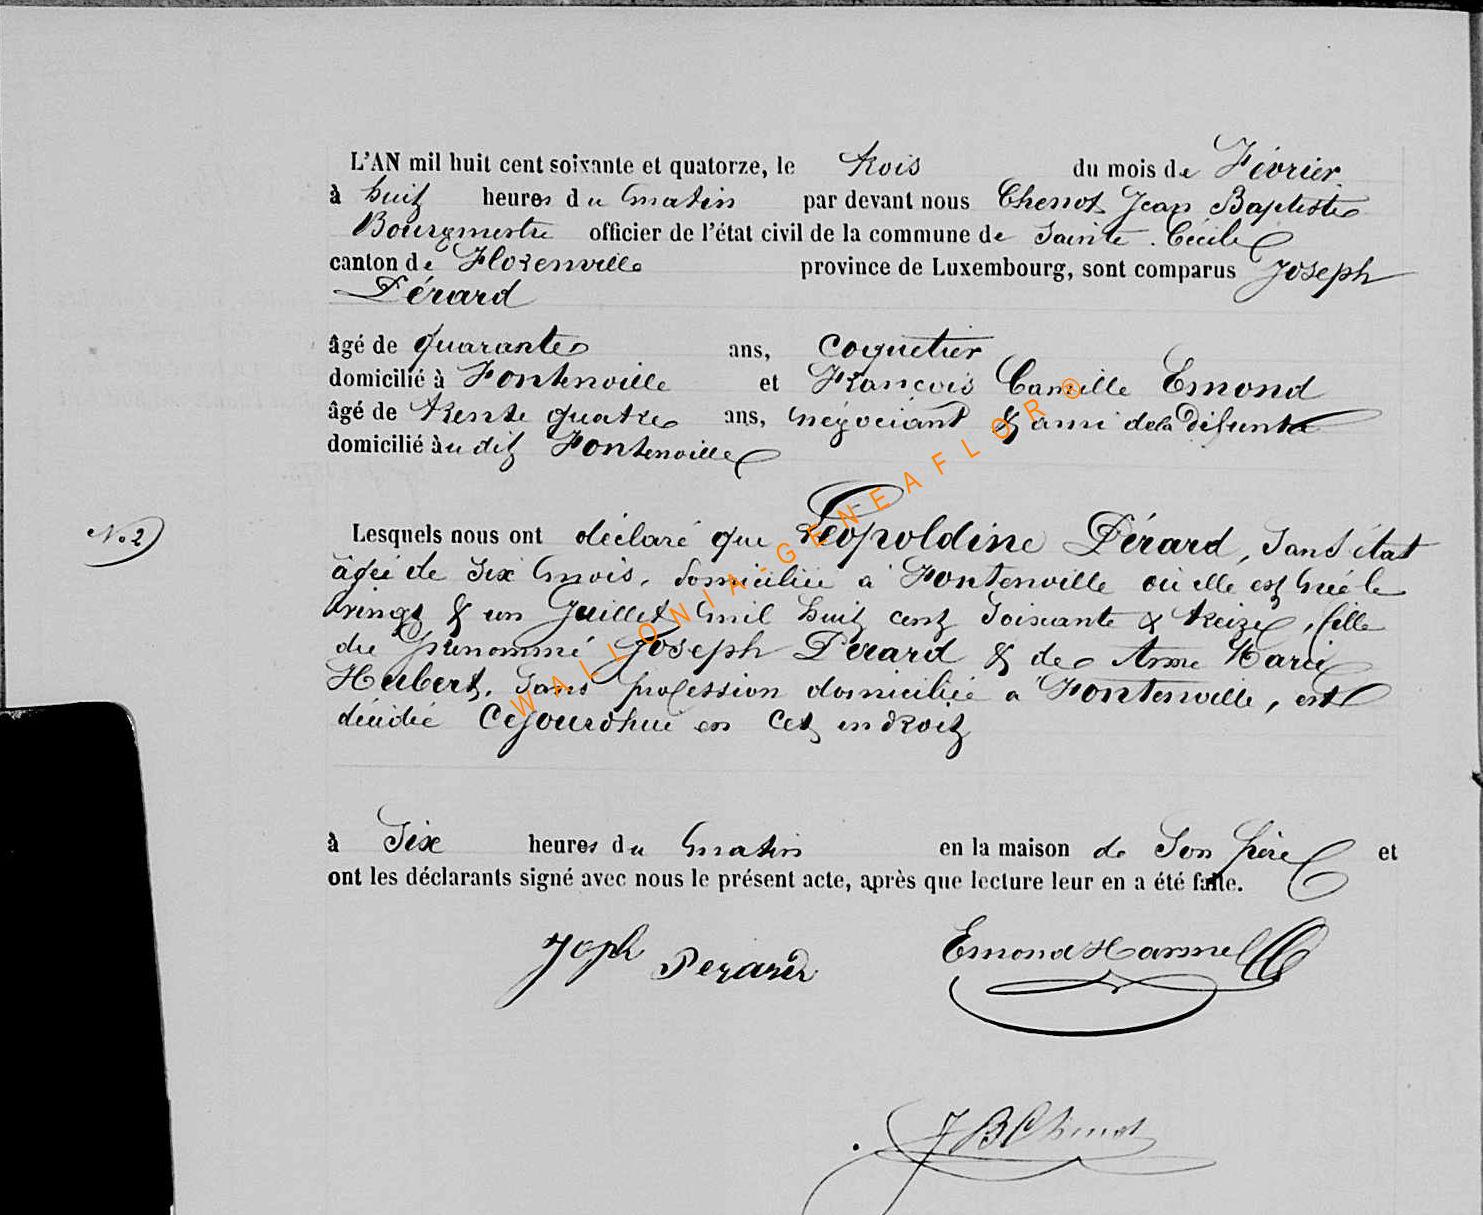 L'AN mil huit cent soixante et quatorze, le trois du mois de Février
à huit heures du matin par devant nous Chenot Jean Baptiste
Bourgmestre officier de l'état civil de la commune de Sainte-Cécile
canton de Florenville province de Luxembourg, sont comparus Joseph
Pérard
âgé de quarante ans, coquetier
domicilié à Fontenoille et François Camille Emond
âgé de trente quatre ans, négociant & ami de la défunte
domicilié audit Fontenoille
N.o 2
Lesquels nous ont déclaré que Léopoldine Pérard, sans état
âgée de six mois, domiciliée à Fontenoille où elle est née le
vingt & un Juillet mil huit cent soixante & treize, fille
du prénommé Joseph Pérard & de Anne Marie
Hubert, sans profession domiciliée à Fontenoille, est
décédée cejourd'hui en cet endroit
à six heures du matin en la maison de son père et
ont les déclarants signé avec nous le présent acte, après que lecture leur en a été faite.
Joph Perard Emond Harmel
JB Chenot
WALLONIA-GENEAFLOR®